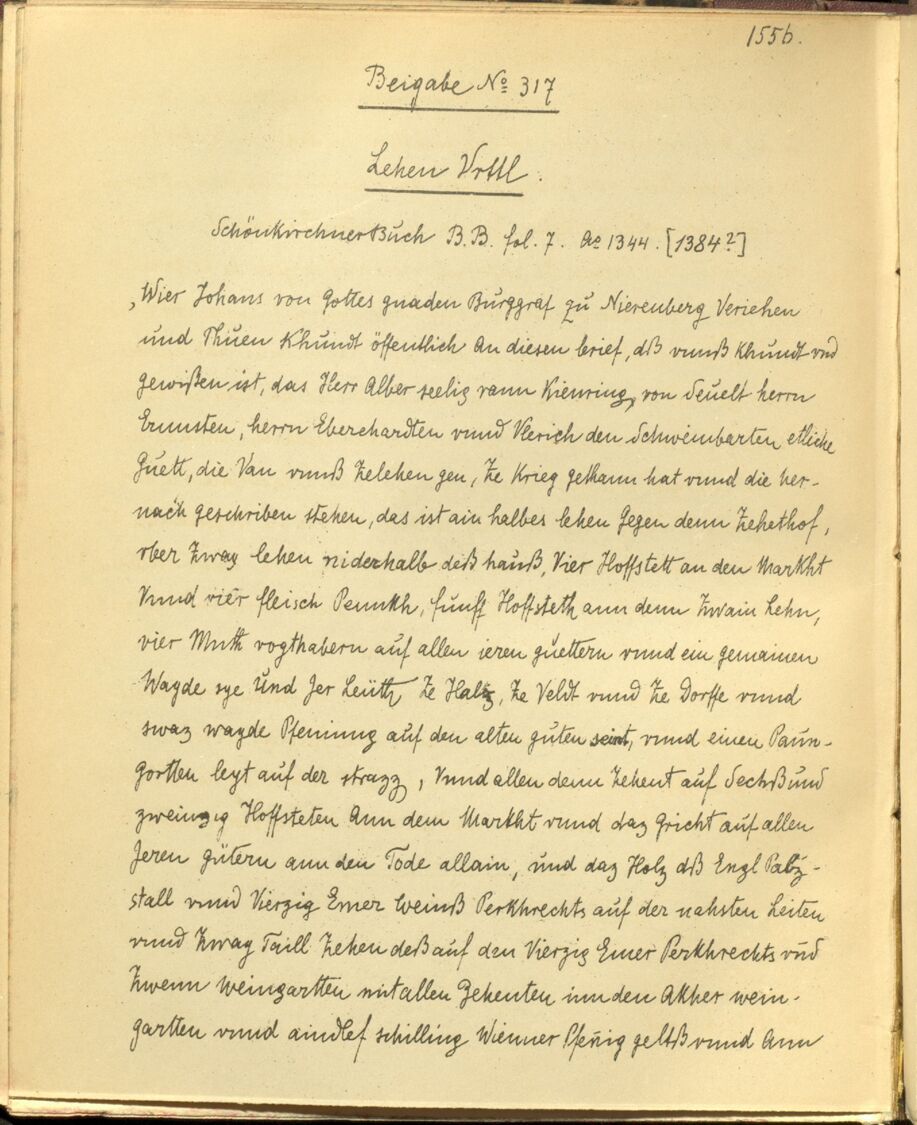 1556.
Beigabe No 317
Lehen Vrttl.
Schönkirchner Buch B.B. fol. 7. Ao 1344. [1384?]
„Wier Johans von Gottes gnaden Burggraf zu Nierenberg Veriehen
und Thuen Khundt öffentlich An diesen brief, dß vnnß Khundt vnd
gewißen ist, das Herr Alber seelig vann Kienring, von Seuelt herrn
Ernnsten, herrn Eberchardten vnnd Vlerich den Schweinbarten etliche
Guett, die Van vnnß Zelehen gen, Ze Krieg gethann hat vnnd die her-
nach geschriben stehen, das ist ain halbes lehen Gegen denn Zehethof,
vber Zway lehen niderhalb deß hauß, Vier Hoffstett an den Markht
Vnnd vier fleisch Pennkh, funff Hoffsteth ann denn Zwain Lehn,
vier Muth vogthabern auf allen ieren guettern vnnd ein gemainen
Wayde sye Und Jer Leüth Ze Halz, Ze Veldt vnnd Ze Dorffe vnnd
swaz wayde Pfening auf den alten guten seint, vnnd einen Paun-
Gortten leyt auf der strazz, Vnnd allen denn Zehent auf Sechß Und
zweinzig Hoffsteten Ann dem Markht vnnd daz Gricht auf allen
Jeren gütern ann den Tode allain, und daz Holz dß Engl Palz-
stall vnnd Vierzig Emer Weinß Perkhrechts auf der nahsten Leiten
vnnd Zway Taill Zehen deß auf den Vierzig Emer Perkhrechts vnd
Zwenn Weingartten mit allen Zehenten inn den Akher wein-
gartten vnnd aindlef schilling Wienner Pfenig geltß vnnd Ann